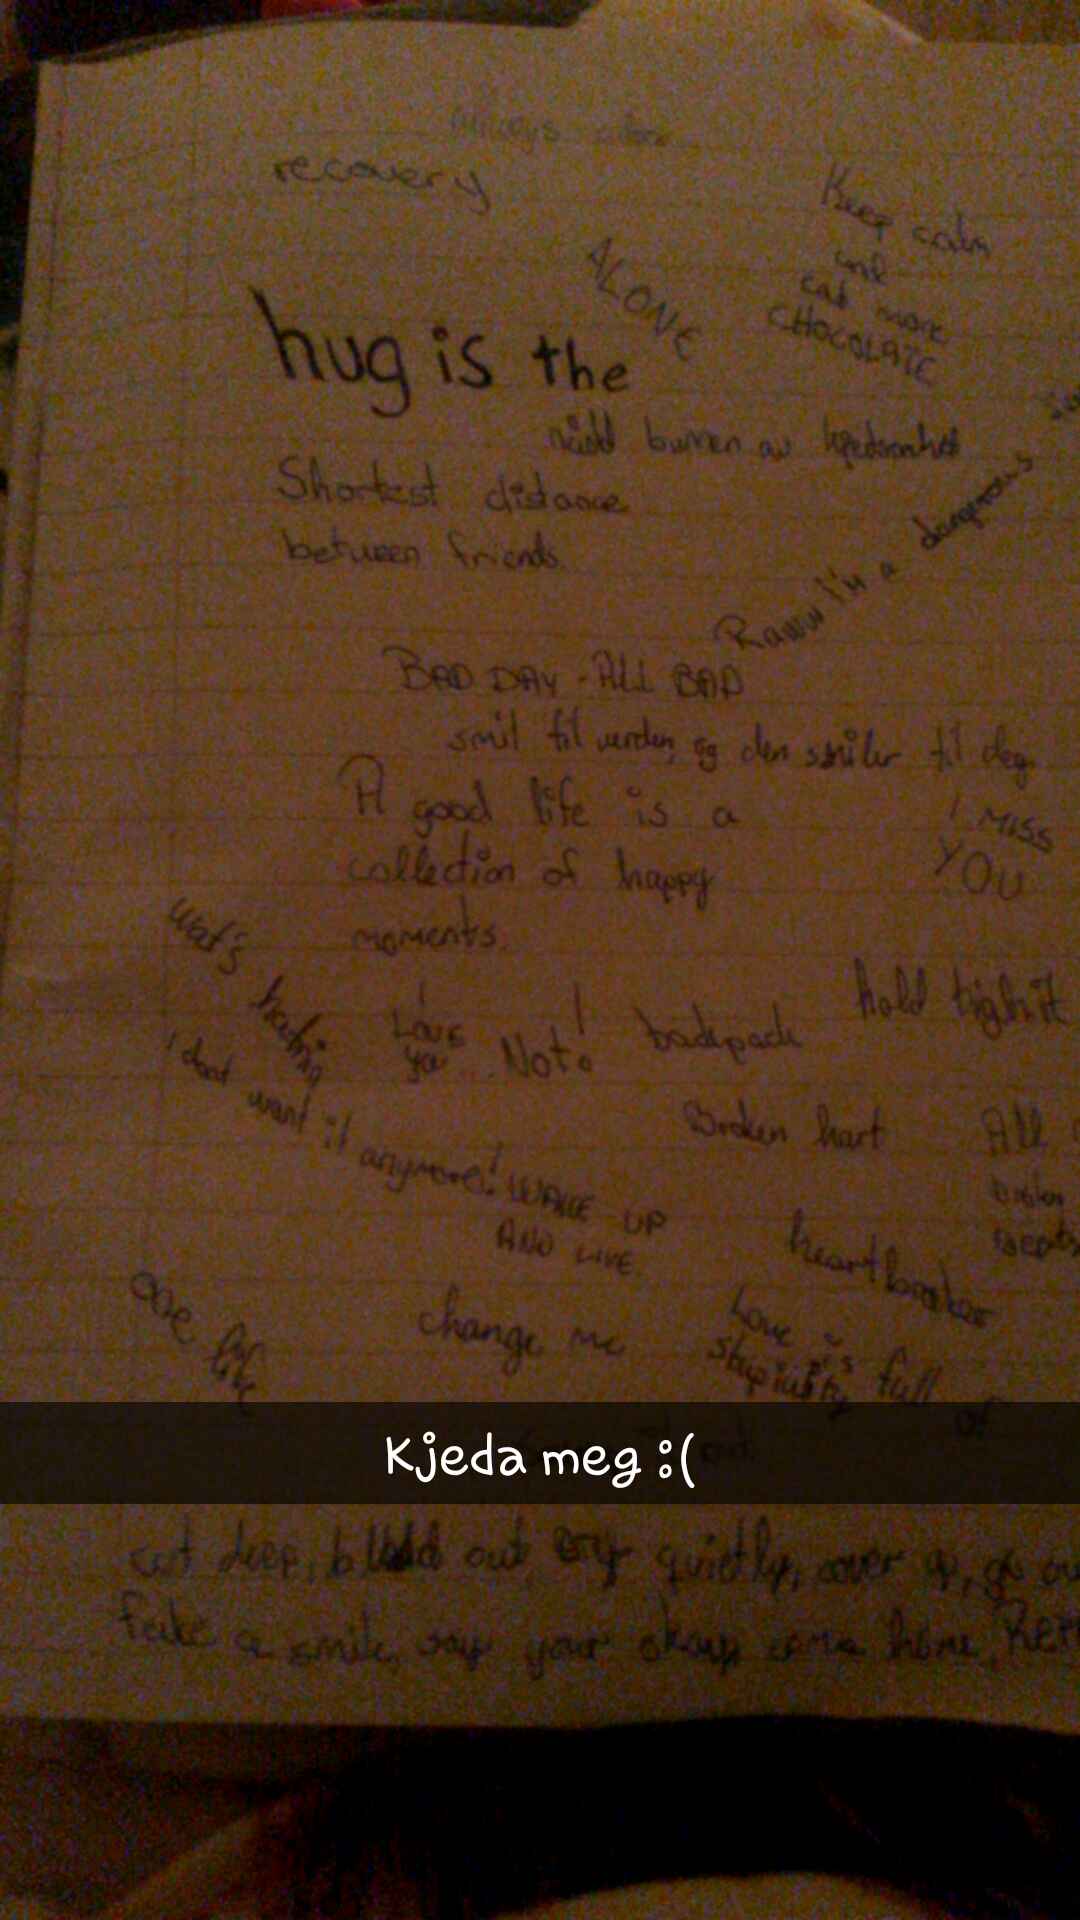 Always
recovery
Keep calm
and
eat more
CHOCOLATE
ALONE
hug is the
Shortest distance
between friends.
av
Raww I'm a dangerous
BAD DAY - ALL BAD
smil til verden, og den smiler til deg.
A good life is a
collection of happy
moments.
I MISS
YOU
wat's
I dont want it anymore!
I
Love
ya ... Not!
backpack
hold tight
Broken hart
All
WAKE UP
AND LIVE
heartbreaker
one life
change me
Love is full of
stupidity
Kjeda meg :(
cut deep, out cry quietly, cover up, go
fake a smile, say your okay come home,